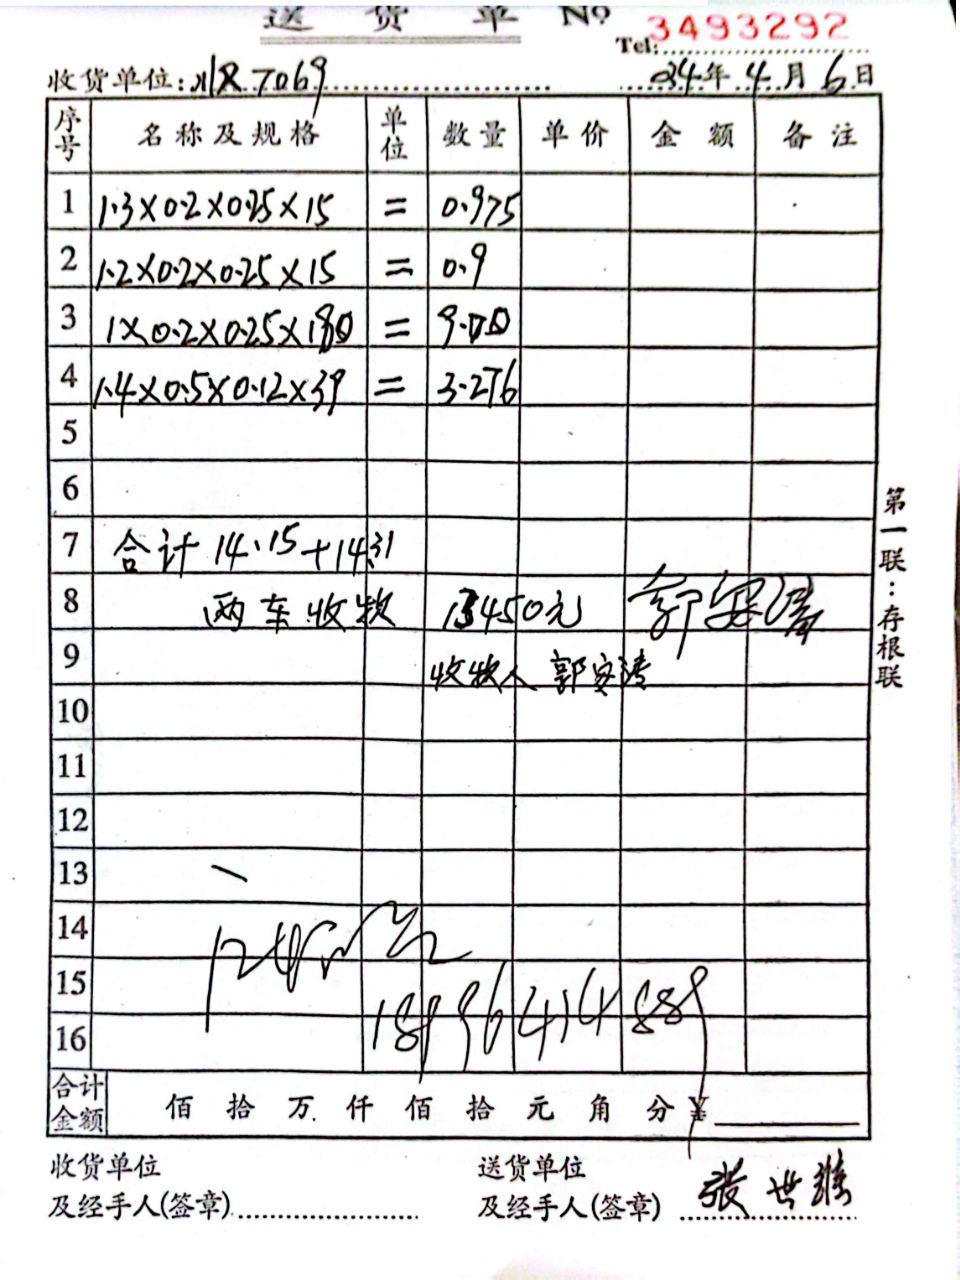 送货单 №
3493292
Tel:
收货单位: 7069 24年4月6日
序号 名称及规格 单位 数量 单价 金额 备注
1 1.3×0.2×0.25×15 = 0.975
2 1.2×0.2×0.25×15 = 0.9
3 1×0.2×0.25×180 = 9.00
4 1.4×0.5×0.12×39 = 3.276
5
6
7 合计 14.15+14.31
8 两车收款 13450元 郭安清
9 收款人 郭安清
10
11
12
13
14
15
18996414889
16
合计金额 佰拾万仟佰拾元角分¥
收货单位 送货单位
及经手人(签章) 及经手人(签章) 张世雄
第一联:存根联